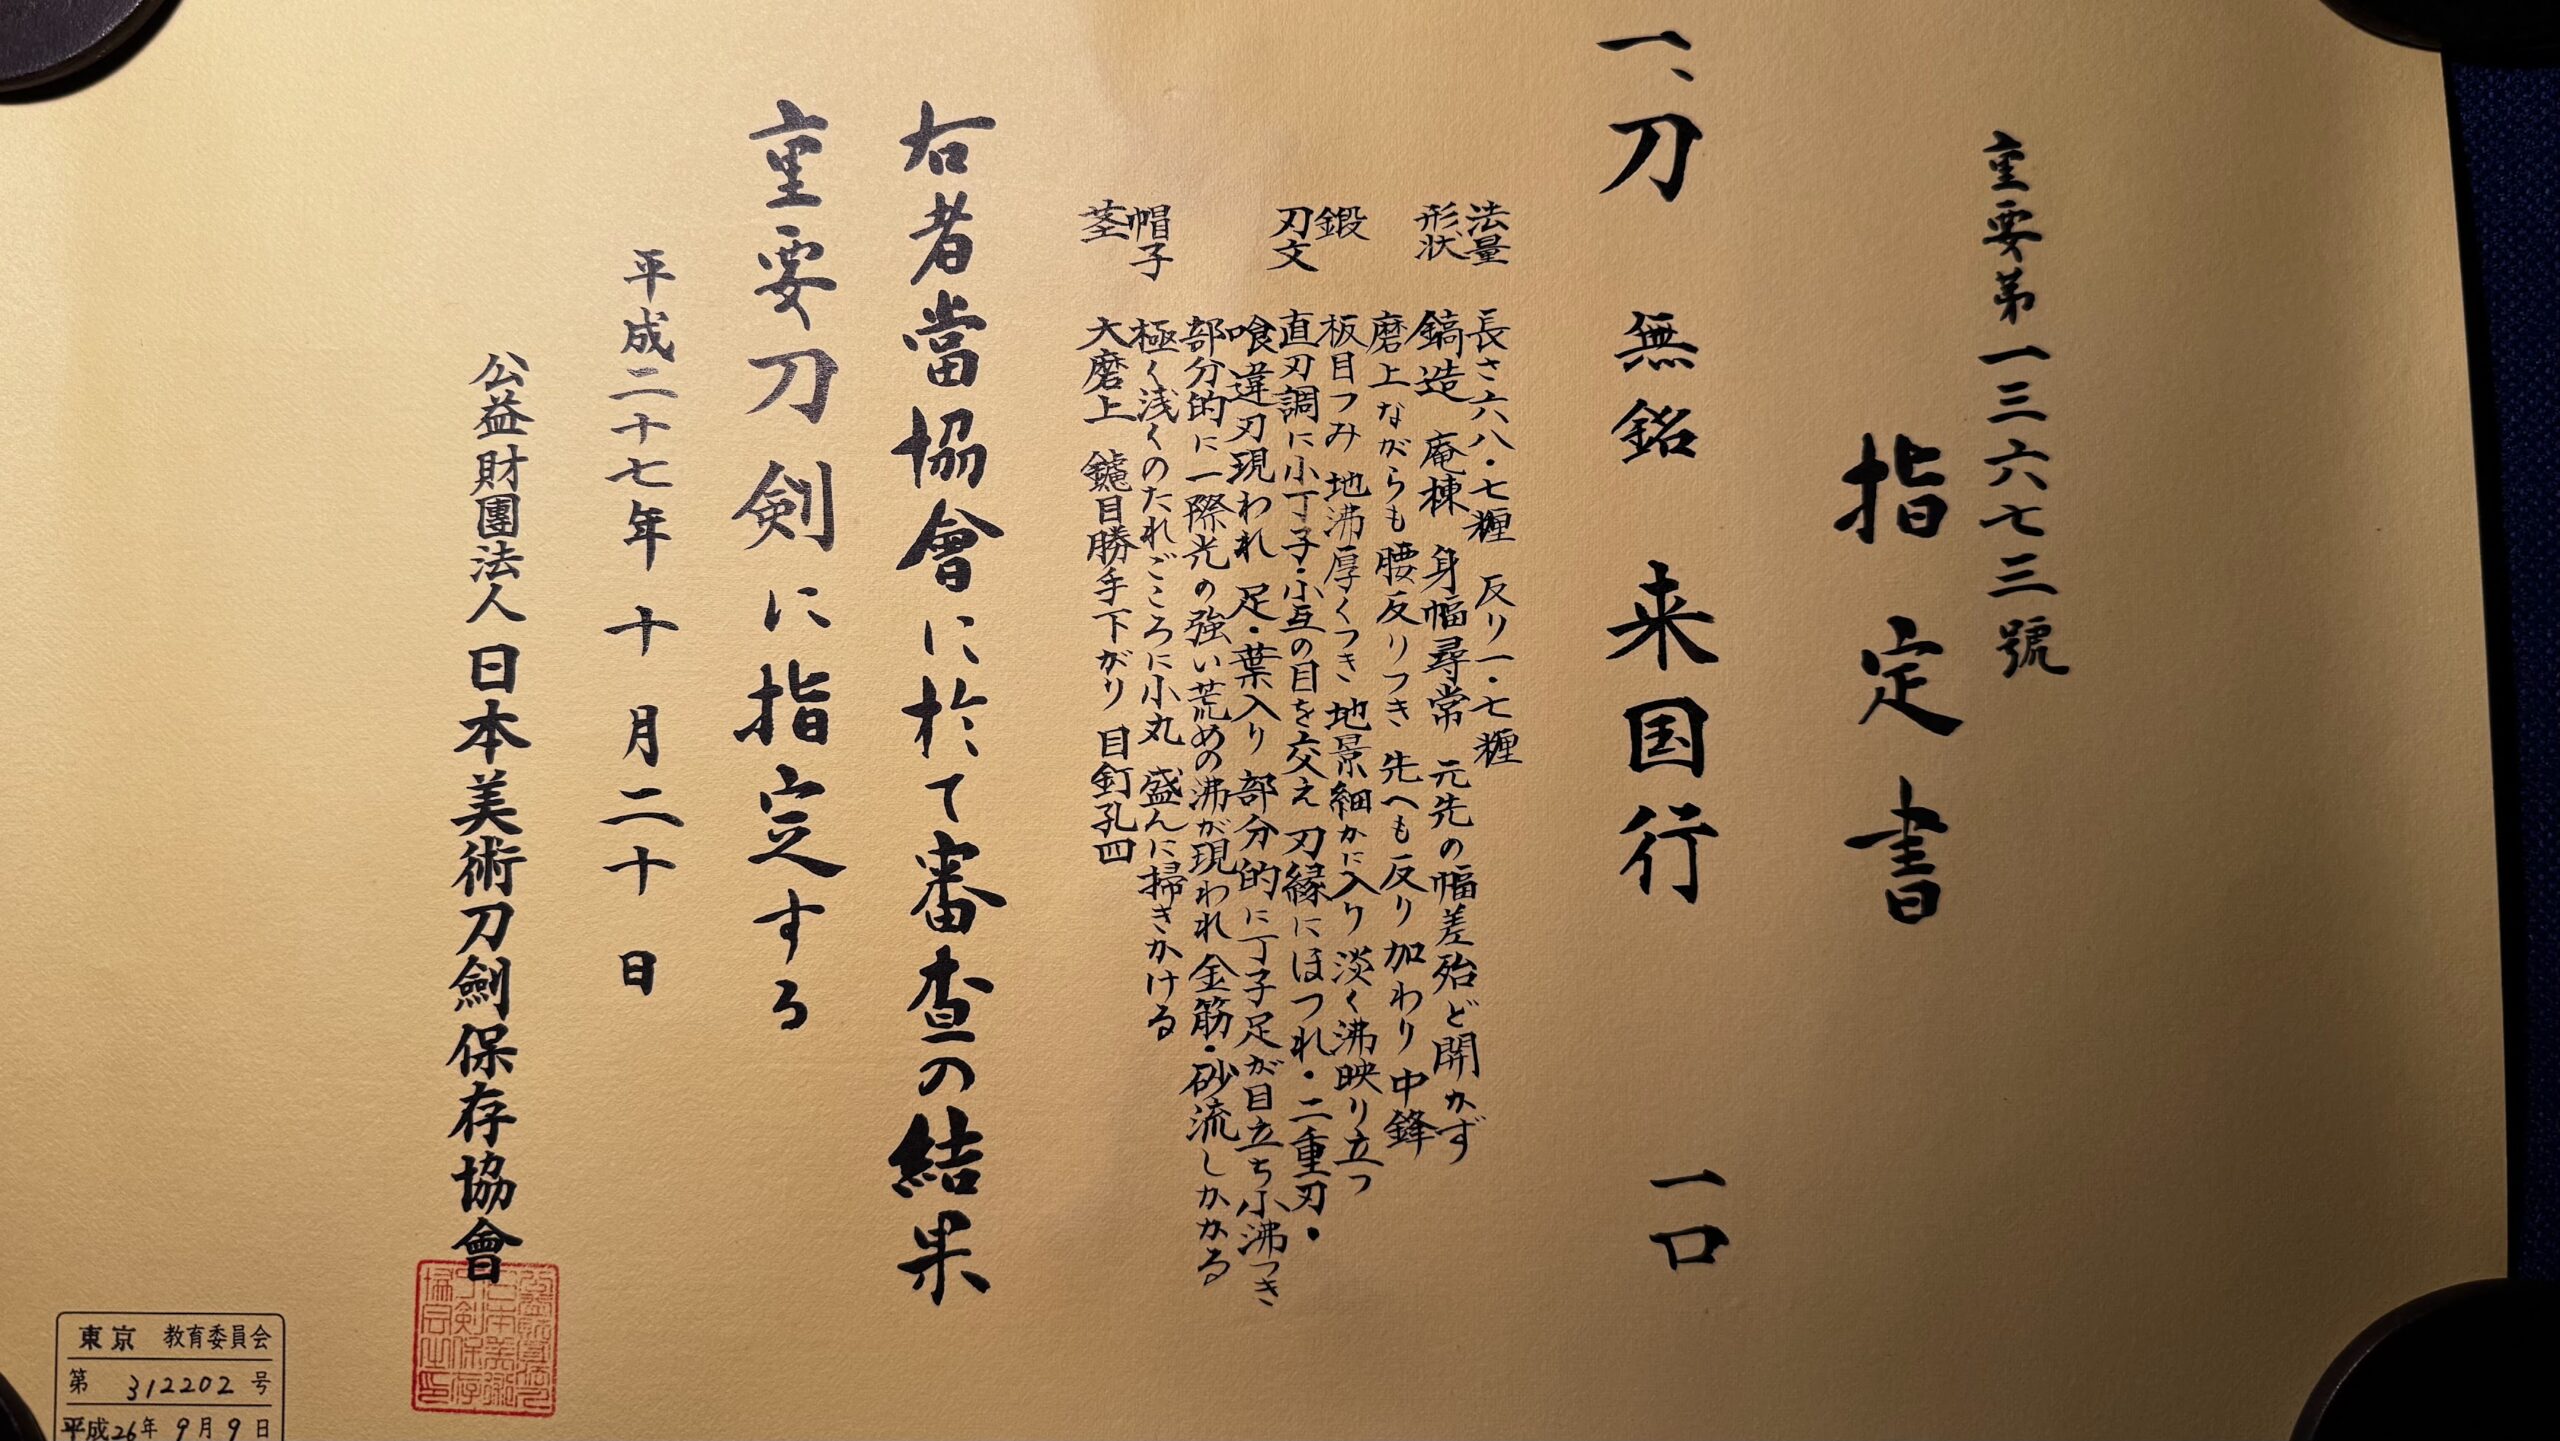 重要第一三六七三號
指定書
一、刀 無銘 来国行 一口
法量 長さ六八・七糎 反り一・七糎
形状 鎬造 庵棟 身幅尋常 元先の幅差殆ど開かず
磨上ながらも腰反りつき 先へも反り加わり 中鋒
鍛 板目つみ 地沸厚くつき 地景細かに入り 淡く沸映り立つ
刃文 直刃調に小丁子・小互の目を交え 刃縁にほつれ・二重刃・
喰違刃現われ 足・葉入り 部分的に丁子足が目立ち 小沸つき
部分的に一際光の強い荒めの沸が現われ 金筋・砂流しかかる
帽子 極く浅くのたれごころに小丸 盛んに掃きかける
茎 大磨上 鑢目勝手下がり 目釘孔四
右者當協會に於て審査の結果
重要刀剣に指定する
平成二十七年十月二十日
公益財團法人日本美術刀劍保存協會
東京 教育委員会
第 312202 号
平成26年 9月9日